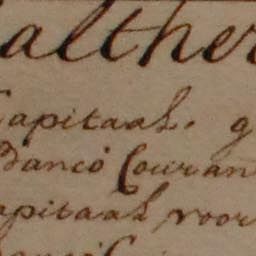 alther
Capitaal. g
Banco Couran
apitaal voor